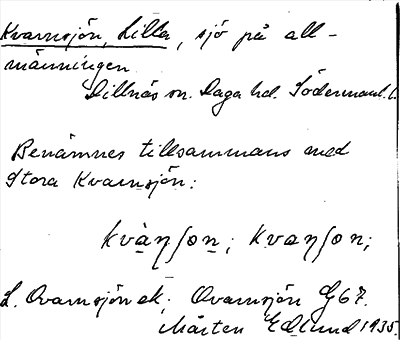 Kvarnsjön, Lilla, sjö på all-
männingen
Dillnäs sn. Daga hd. Södermanl. l.
Benämnes tillsammans med
Stora Kvarnsjön:
kvàŋʃon; kvaŋʃon;
L. Qvarnsjön ek; Qvarnsjön G 67.
Mårten Edlund 1935.